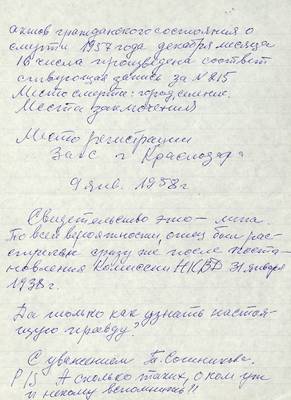 актов гражданского состояния о
смерти 1957 года декабря месяца
16 числа произведена соответ
ствующая запись за № 215
Место смерти: город, селение.
Места заключения
Место регистрации
Загс г. Краснодара
9 янв. 1958 г.
Свидетельство это – липа.
По всей вероятности, отец был рас-
стрелян сразу же после поста-
новления Комиссии НКВД 31 января
1938 г.
Да только как узнать настоя-
щую правду?
С уважением Т.
P/S А сколько таких, о ком уж
и некому вспомнить!!